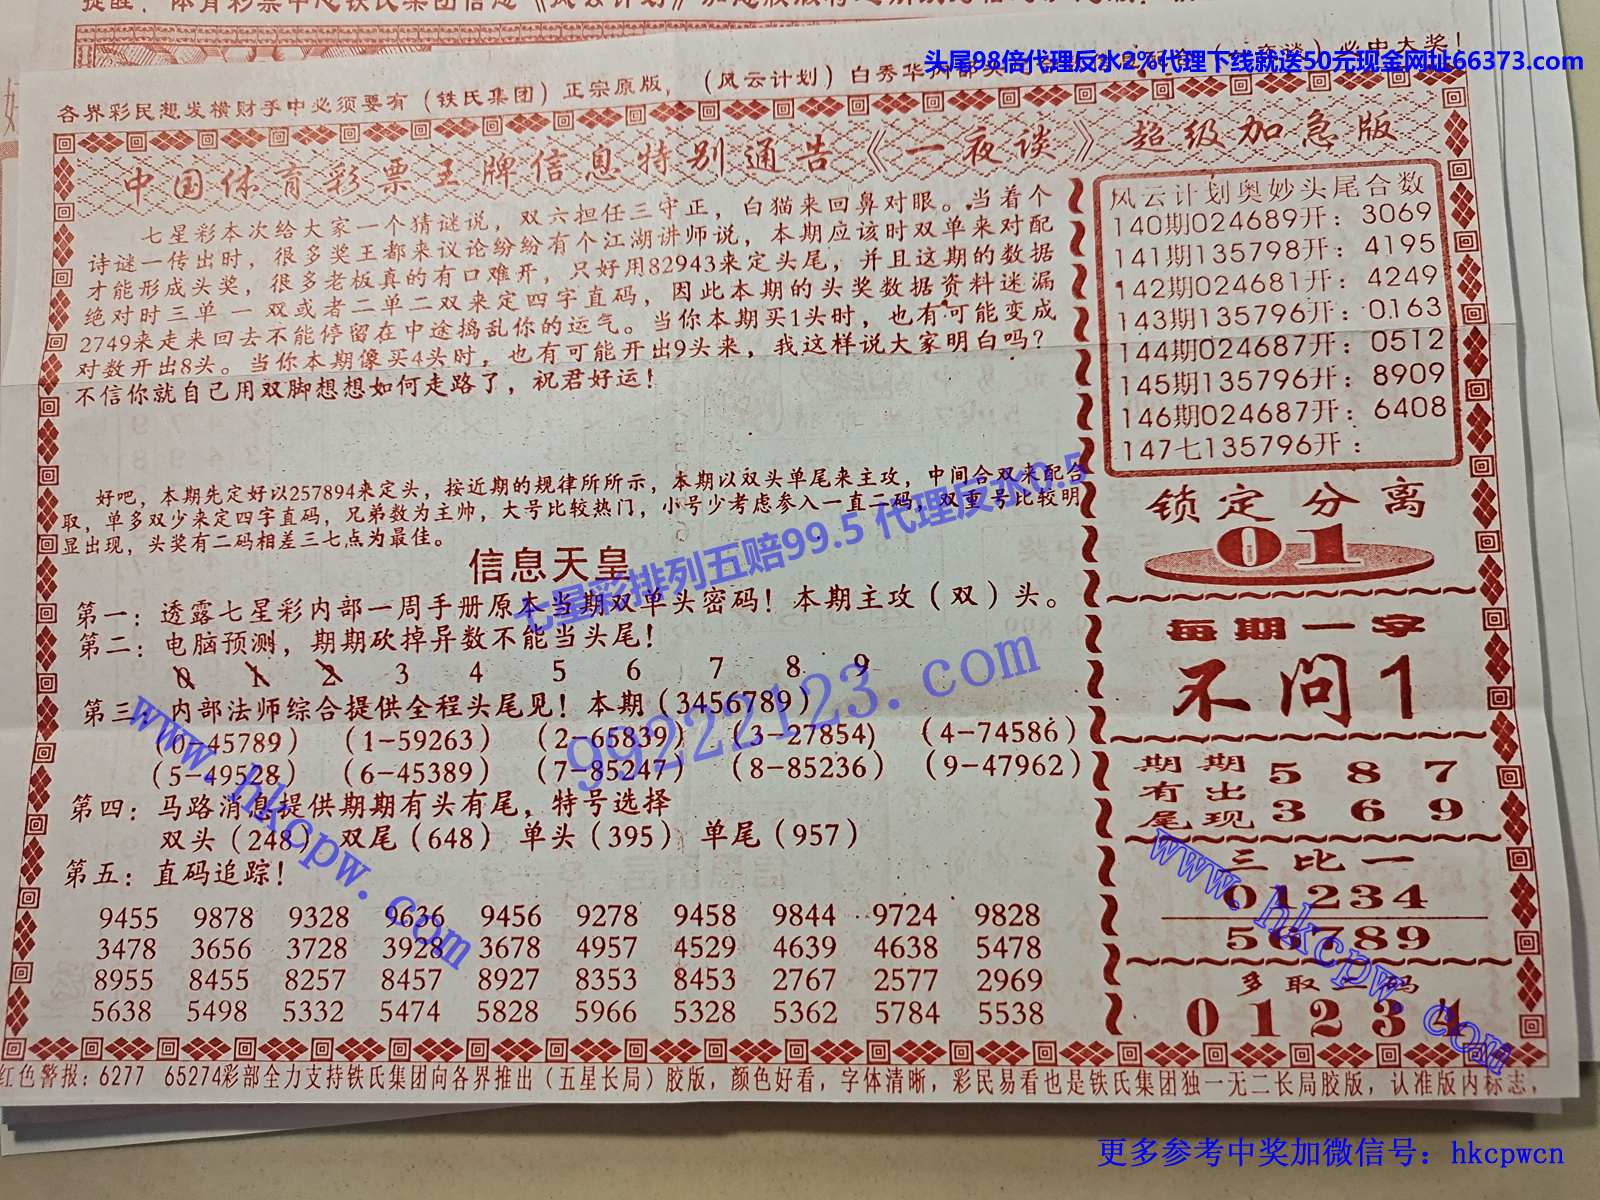 提醒：体育彩票中心铁氏集团信息《风云计划》
头尾98倍代理反水2%代理下线就送50元现金网址66373.com
各界彩民想发横财手中必须要有（铁氏集团）正宗原版，（风云计划）白秀华 必中大奖！
中国体育彩票王牌信息特别通告《一夜谈》超级加急版
七星彩本次给大家一个猜谜说，双六担任三守正，白猫来回鼻对眼。当着个
诗谜一传出时，很多奖王都来议论纷纷有个江湖讲师说，本期应该时双单来对配
才能形成头奖，很多老板真的有口难开，只好用82943来定头尾，并且这期的数据
绝对时三单一双或者二单二双来定四字直码，因此本期的头奖数据资料迷漏
2749来走来回去不能停留在中途捣乱你的运气。当你本期买1头时，也有可能变成
对数开出8头。当你本期像买4头时，也有可能开出9头来，我这样说大家明白吗？
不信你就自己用双脚想想如何走路了，祝君好运！
好吧，本期先定好以257894来定头，按近期的规律所所示，本期以双头单尾来主攻，中间合双来配合
取，单多双少来定四字直码，兄弟数为主帅，大号比较热门，小号少考虑参入一直二码，双重号比较明
显出现，头奖有二码相差三七点为最佳。
七星彩排列五赔99.5 代理反水0.5
信息天皇
第一：透露七星彩内部一周手册原本当期双单头密码！本期主攻（双）头。
第二：电脑预测，期期砍掉异数不能当头尾！
0 1 2 3 4 5 6 7 8 9
第三：内部法师综合提供全程头尾见！本期（3456789）
（0-45789）（1-59263）（2-65839）（3-27854）（4-74586）
（5-49528）（6-45389）（7-85247）（8-85236）（9-47962）
第四：马路消息提供期期有头有尾，特号选择
双头（248）双尾（648）单头（395）单尾（957）
第五：直码追踪！
9455 9878 9328 9636 9456 9278 9458 9844 9724 9828
3478 3656 3728 3928 3678 4957 4529 4639 4638 5478
8955 8455 8257 8457 8927 8353 8453 2767 2577 2969
5638 5498 5332 5474 5828 5966 5328 5362 5784 5538
风云计划奥妙头尾合数
140期024689开：3069
141期135798开：4195
142期024681开：4249
143期135796开：0163
144期024687开：0512
145期135796开：8909
146期024687开：6408
147七135796开：
锁定分离
01
每期一字
不问1
期期有出尾现
5 8 7
3 6 9
三比一
01234
56789
多取二码
0 1 2 3 4
www.hkcpw.com
99222123.com
www.hkcpw.com
红色警报：6277 65274彩部全力支持铁氏集团向各界推出（五星长局）胶版，颜色好看，字体清晰，彩民易看也是铁氏集团独一无二长局胶版，认准版内标志，
更多参考中奖加微信号：hkcpwcn